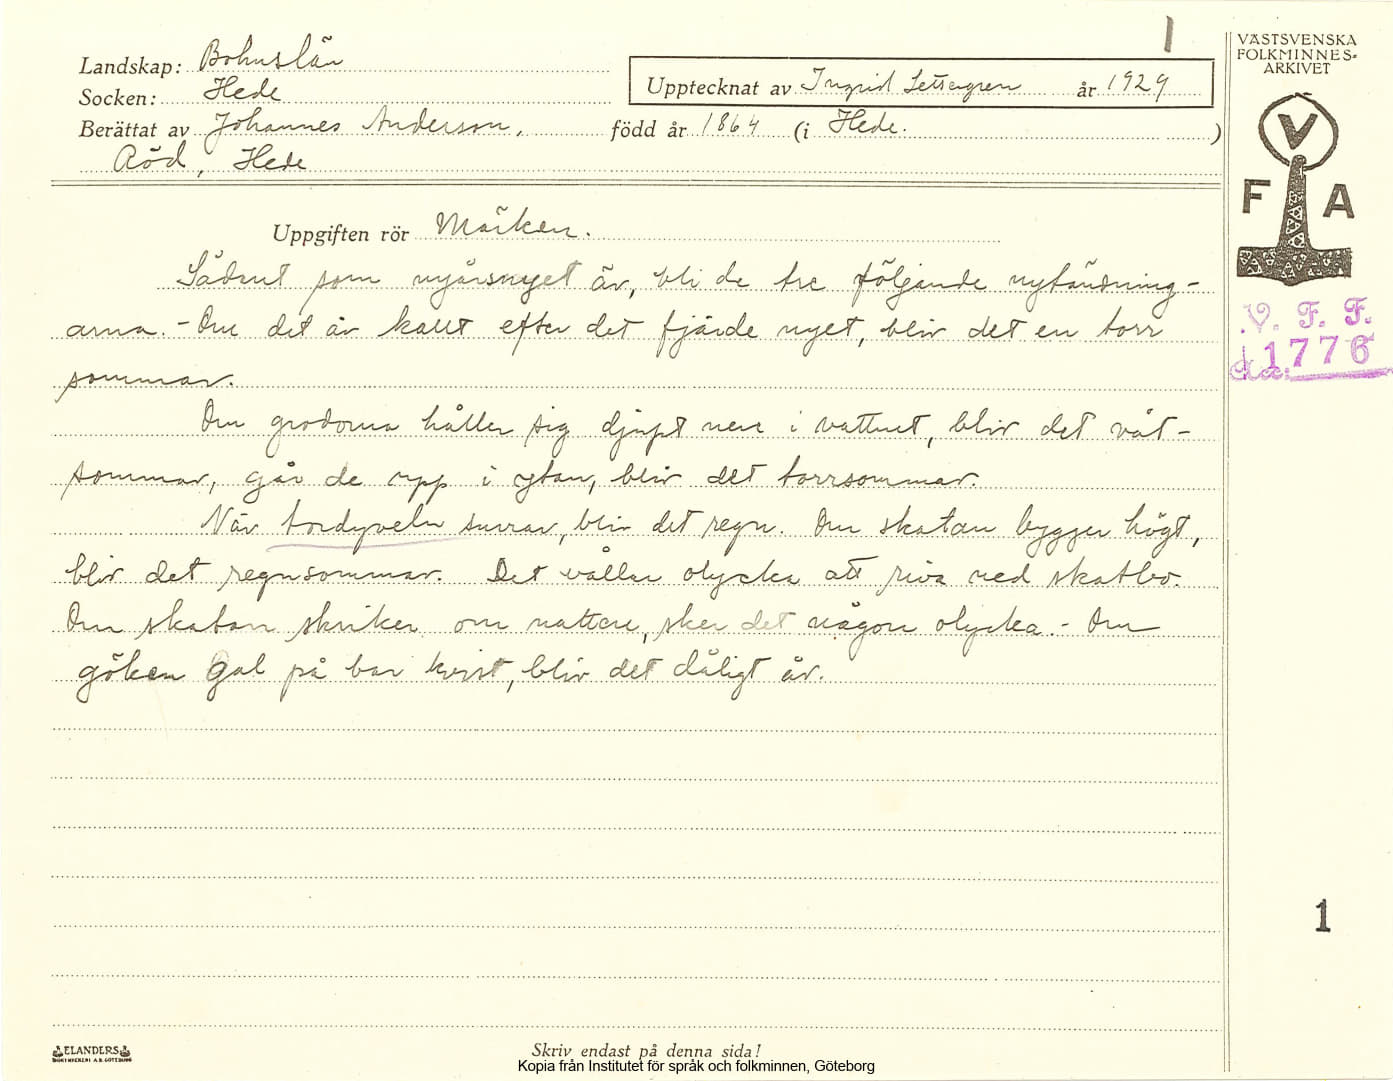 1
Landskap: Bohuslän
Socken: Hede
Upptecknat av Ingrid Settergren år 1929
Berättat av Johannes Anderson, född år 1864 (i Hede.)
Röd, Hede
Uppgiften rör Märken.
Sådant som nyårsnyet är, bli de tre följande nytändning-
arna. - Om det är kallt efter det fjärde nyet, blir det en torr
sommar.
Om grodorna håller sig djupt nere i vattnet, blir det våt-
sommar, går de upp i ytan, blir det torrsommar.
När tordyveln surrar, blir det regn. Om skatan bygger högt,
blir det regnsommar. Det vållar olycka att riva ned skatbo.
Om skatan skriker om natten, sker det någon olycka. - Om
göken gal på bar kvist, blir det dåligt år.
VÄSTSVENSKA
FOLKMINNES-
ARKIVET
V
F A
V. F. F.
Acc: 1776
1
ELANDERS
BOKTRYCKERI A.B. GÖTEBORG
Skriv endast på denna sida!
Kopia från Institutet för språk och folkminnen, Göteborg